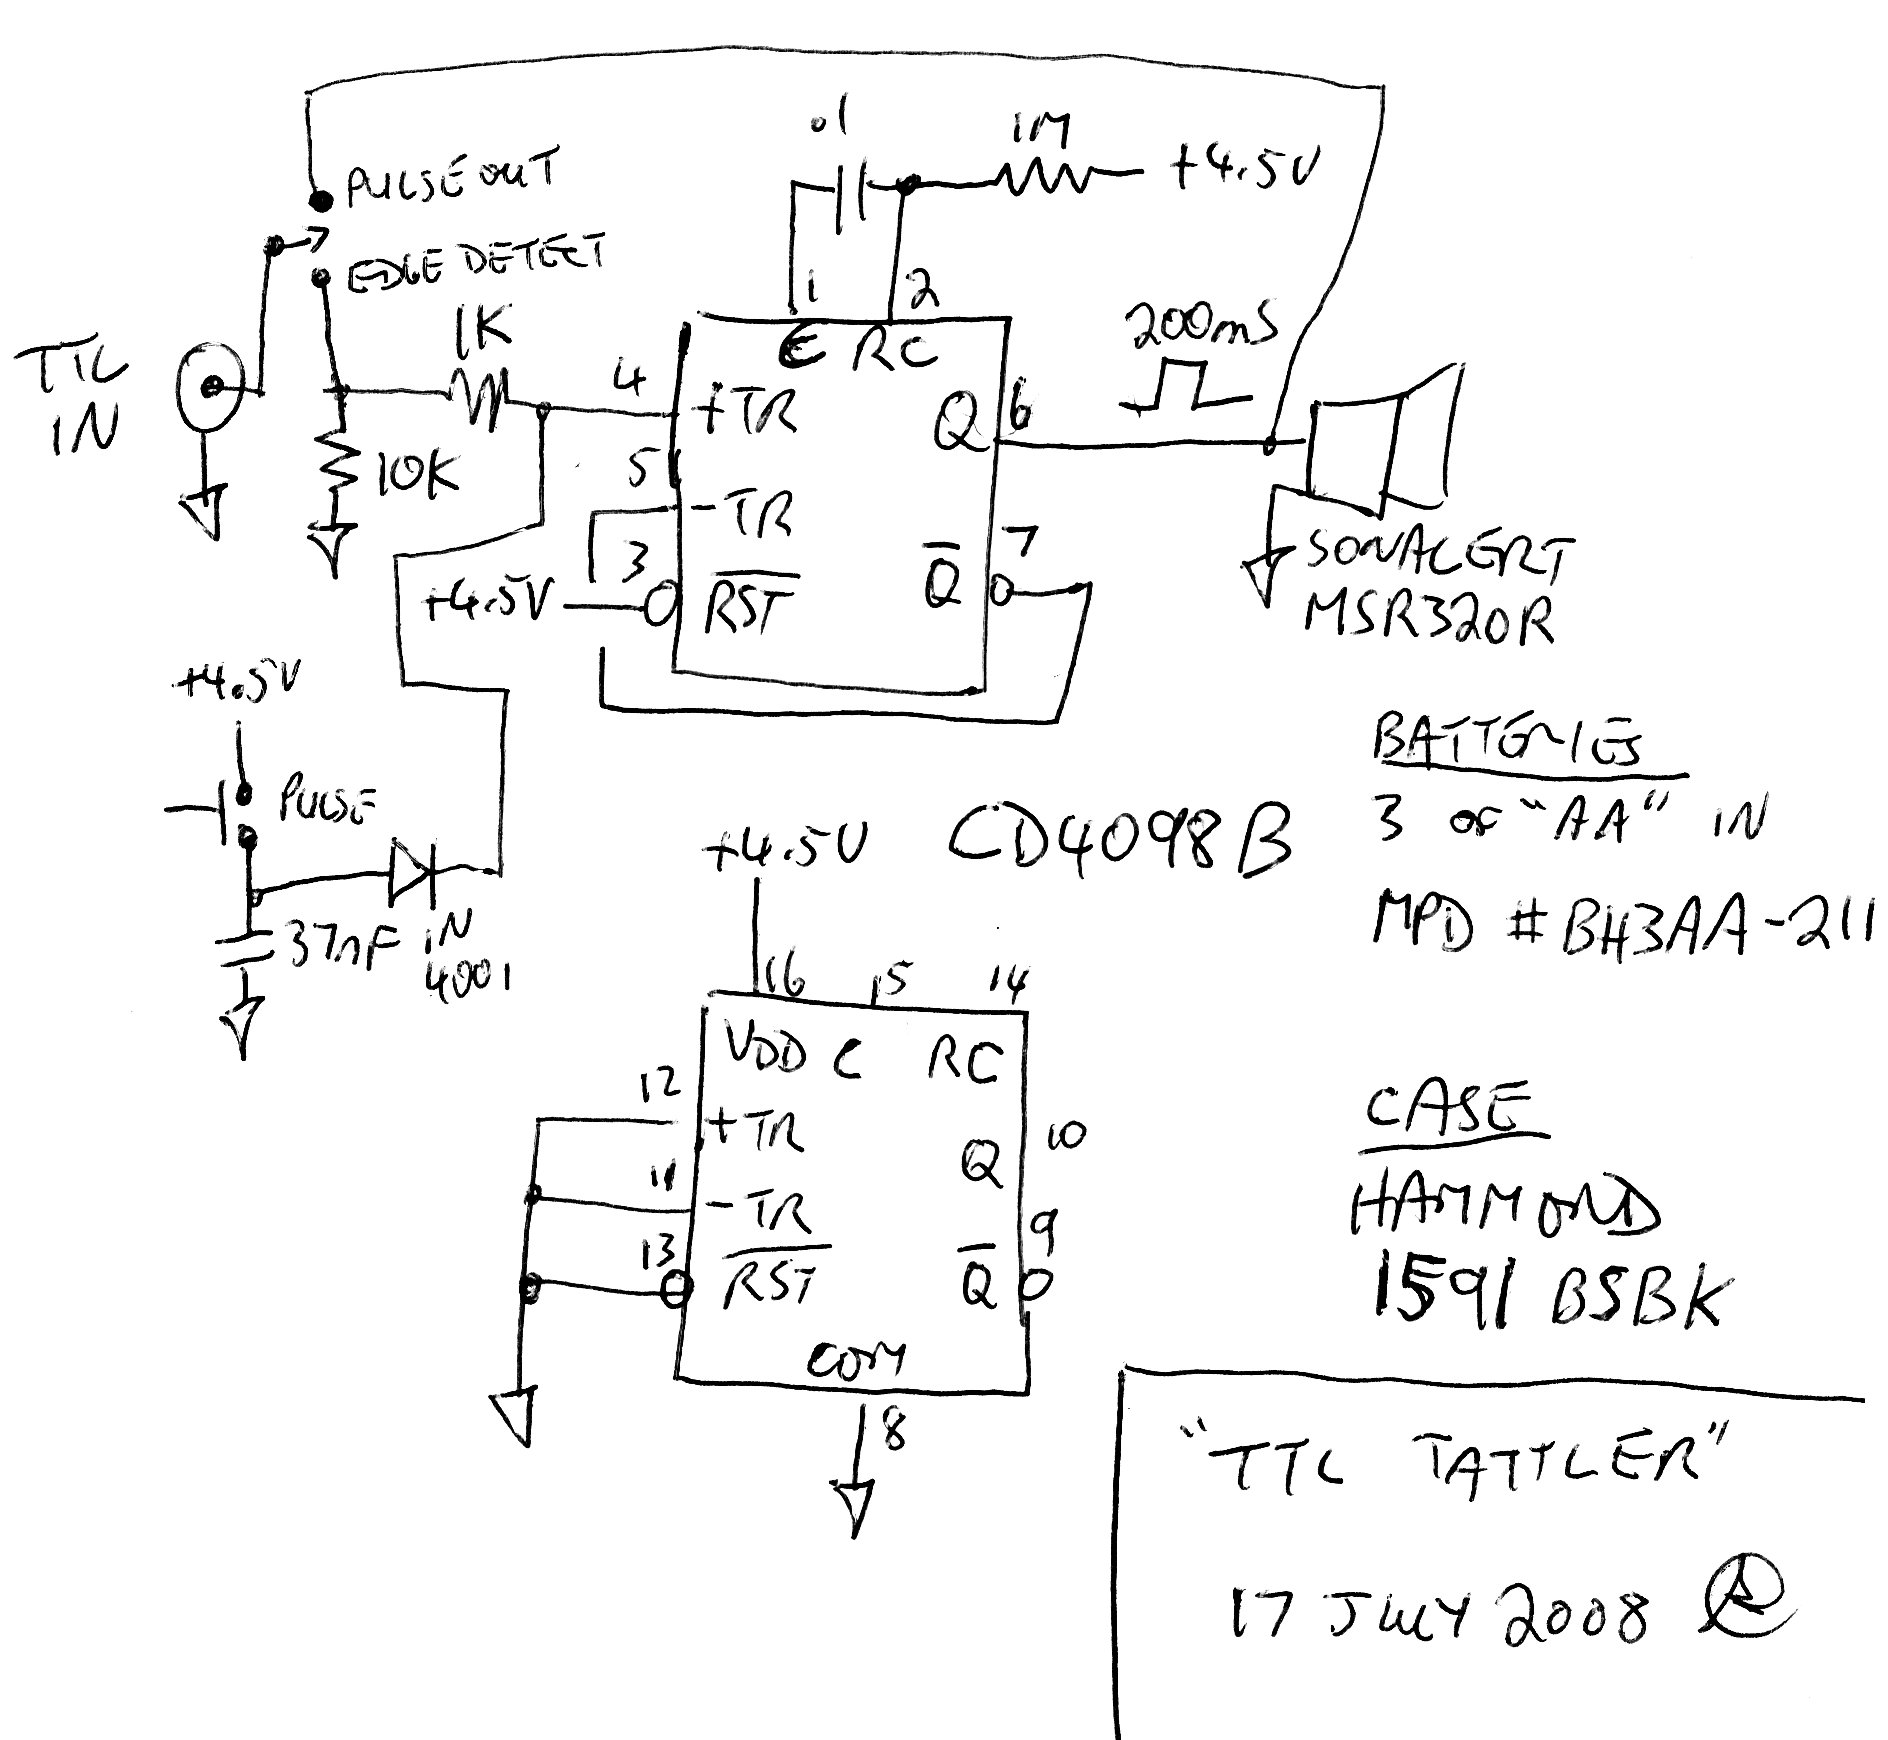 .1
1M
+4.5V
PULSE OUT
EDGE DETECT
TTL
IN
1K
10K
1
2
C RC
4
+TR
5
-TR
3
+4.5V
RST
Q
6
Q
7
200mS
SONALERT
MSR320R
+4.5V
PULSE
37nF
IN
4001
BATTERIES
3 OF "AA" IN
MPD #BH3AA-211
+4.5V
CD4098B
16
15
14
VDD C RC
12
+TR
11
-TR
13
RST
Q
10
Q
9
COM
8
CASE
HAMMOND
1591 BSBK
"TTL TATTLER"
17 JULY 2008